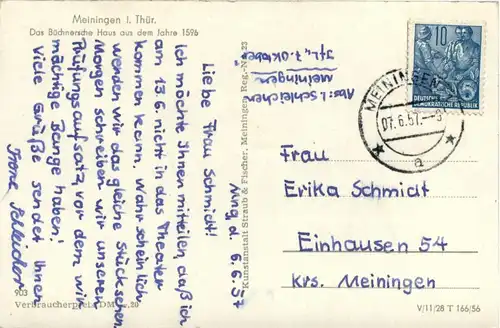 Meiningen i. Thür.
Das Büchnersche Haus aus dem Jahre 1596
Abs: I. Schleicher
Meiningen
Str. d. 7. Oktober 23
d. 6.6.57
Liebe Frau Schmidt!
Ich möchte Ihnen mitteilen, daß ich
am 13.6. nicht in das Theater
kommen kann. Wahrscheinlich
werden wir das gleiche Stück sehen.
Morgen schreiben wir unseren
Prüfungsaufsatz, vor dem wir
mächtige Bange haben!
Viele Grüße sendet Ihnen
Schleicher
903
Verbraucherpreis DM -.20
Kunstanstalt Straub & Fischer, Meiningen, Reg.-Nr.
10
DEUTSCHE
DEMOKRATISCHE REPUBLIK
MEININGEN
07.6.57.
a
Frau
Erika Schmidt
Einhausen 54
krs. Meiningen
V/11/28 T 166/56